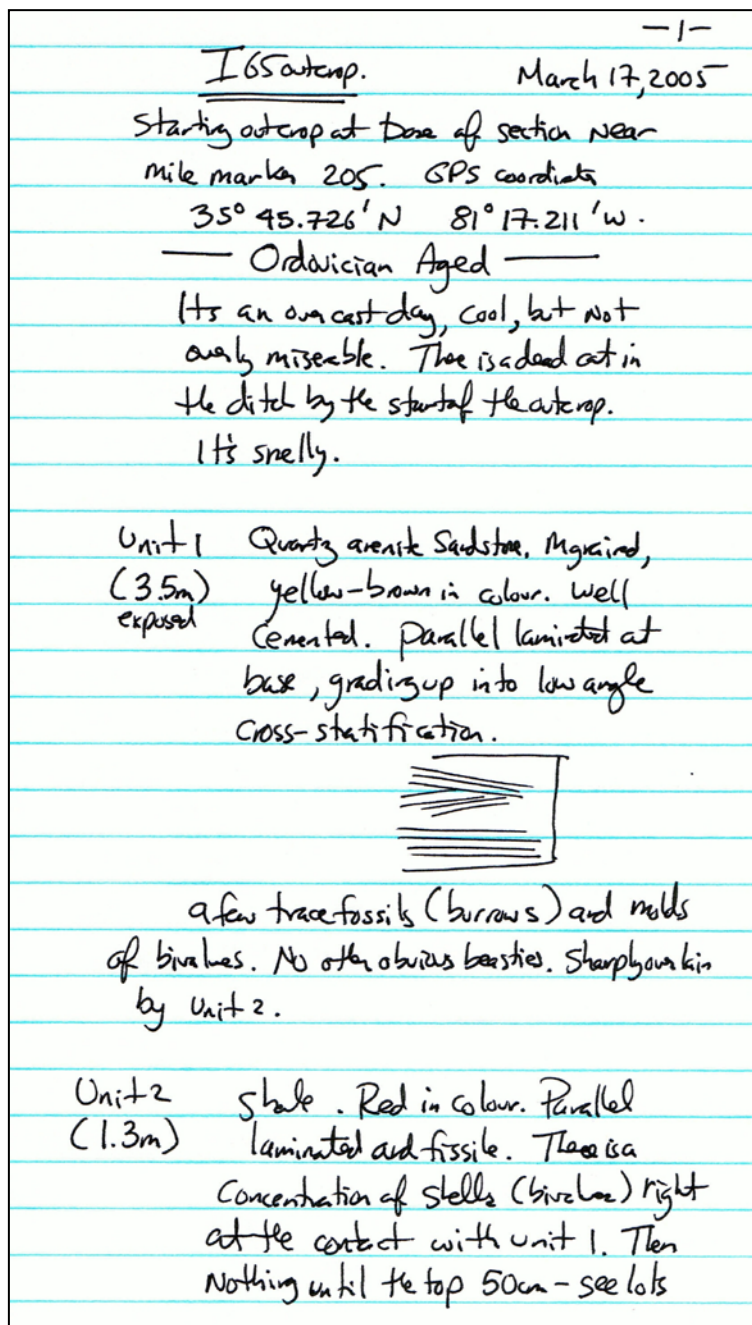 -1-
I65 outcrop. March 17, 2005
Starting outcrop at base of section Near
mile marker 205. GPS coordinate
35° 45.726' N 81° 17.211' W.
Ordovician Aged
Its an overcast day, cool, but Not
overly miserable. There is a dead cat in
the ditch by the start of the outcrop.
It's smelly.
Unit 1 Quartz arenite Sandstone. M grained,
(3.5m) yellow-brown in colour. Well
exposed cemented. Parallel laminated at
base, grading up into low angle
Cross-statification.
a few trace fossils (burrows) and molds
of bivalves. No other obvious beasties. Sharply overlain
by Unit 2.
Unit 2 Shale. Red in colour. Parallel
(1.3m) laminated and fissile. There is a
Concentration of shells (bivalves) right
at the contact with unit 1. Then
Nothing until the top 50cm - see lots